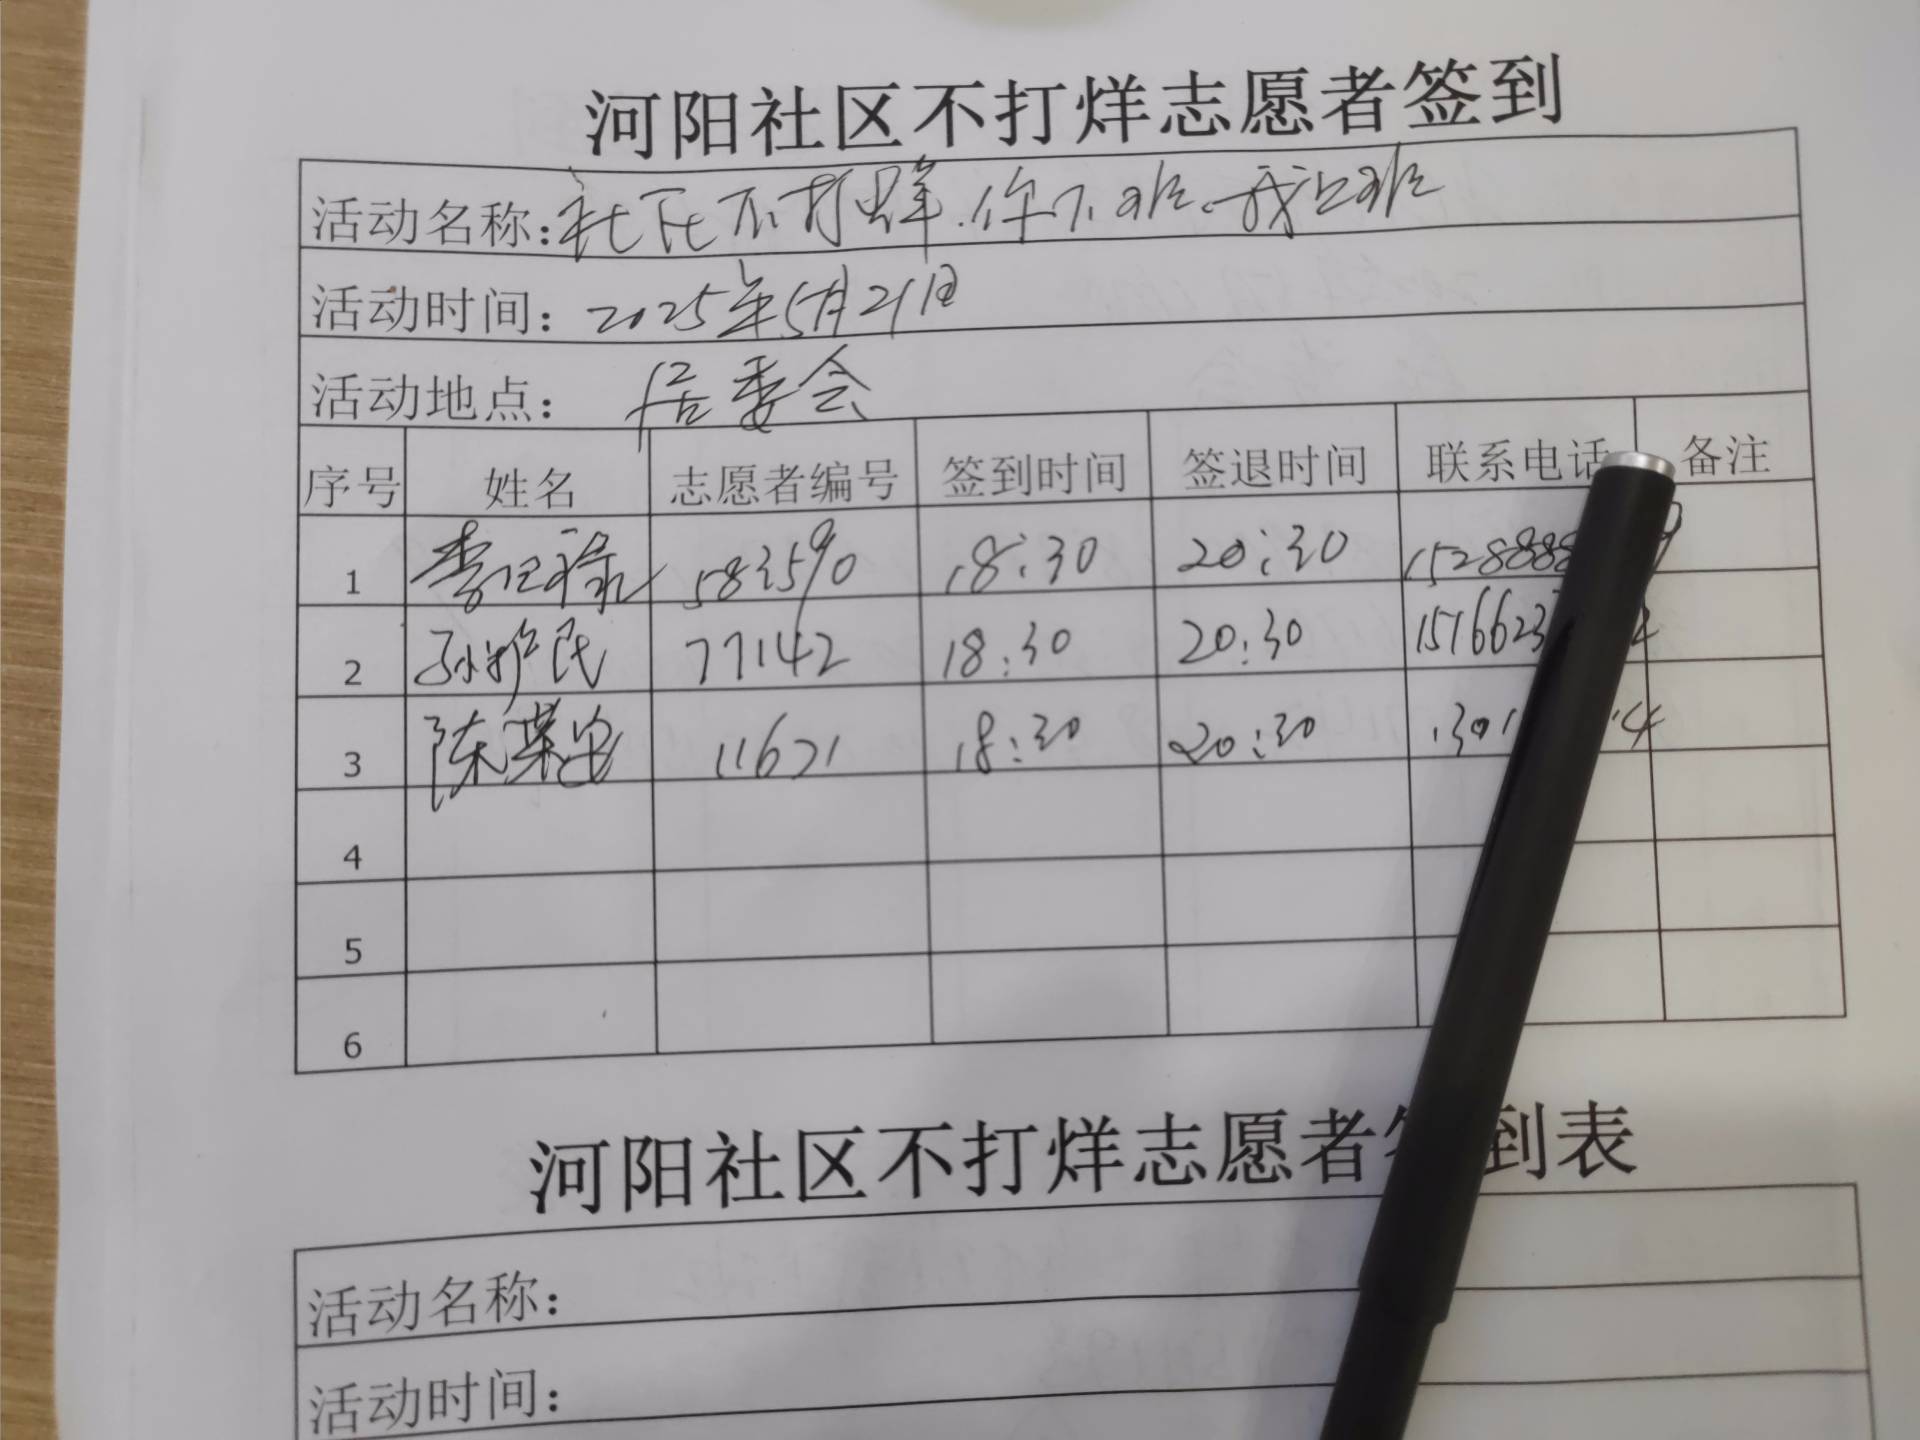 河阳社区不打烊志愿者签到
活动名称：社区不打烊.你下班.我上班
活动时间：2025年5月21日
活动地点：居委会
序号 姓名 志愿者编号 签到时间 签退时间 联系电话 备注
1 583590 18:30 20:30 1528888
2 孙护民 77142 18:30 20:30 1516623
3 陈荣 11671 18:30 20:30
4
5
6
河阳社区不打烊志愿者 到表
活动名称：
活动时间：